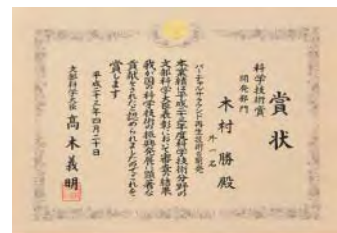 賞状
科学技術賞
開発部門
木村 勝 殿
外一名
バーチャルサラウンド再生技術の開発
本業績は平成二十三年度科学技術分野の
文部科学大臣表彰において審査の結果
我が国の科学技術の振興発展に顕著な
貢献をされたと認められましたのでこれを
賞します
平成二十三年四月二十日
文部科学大臣 髙木義明